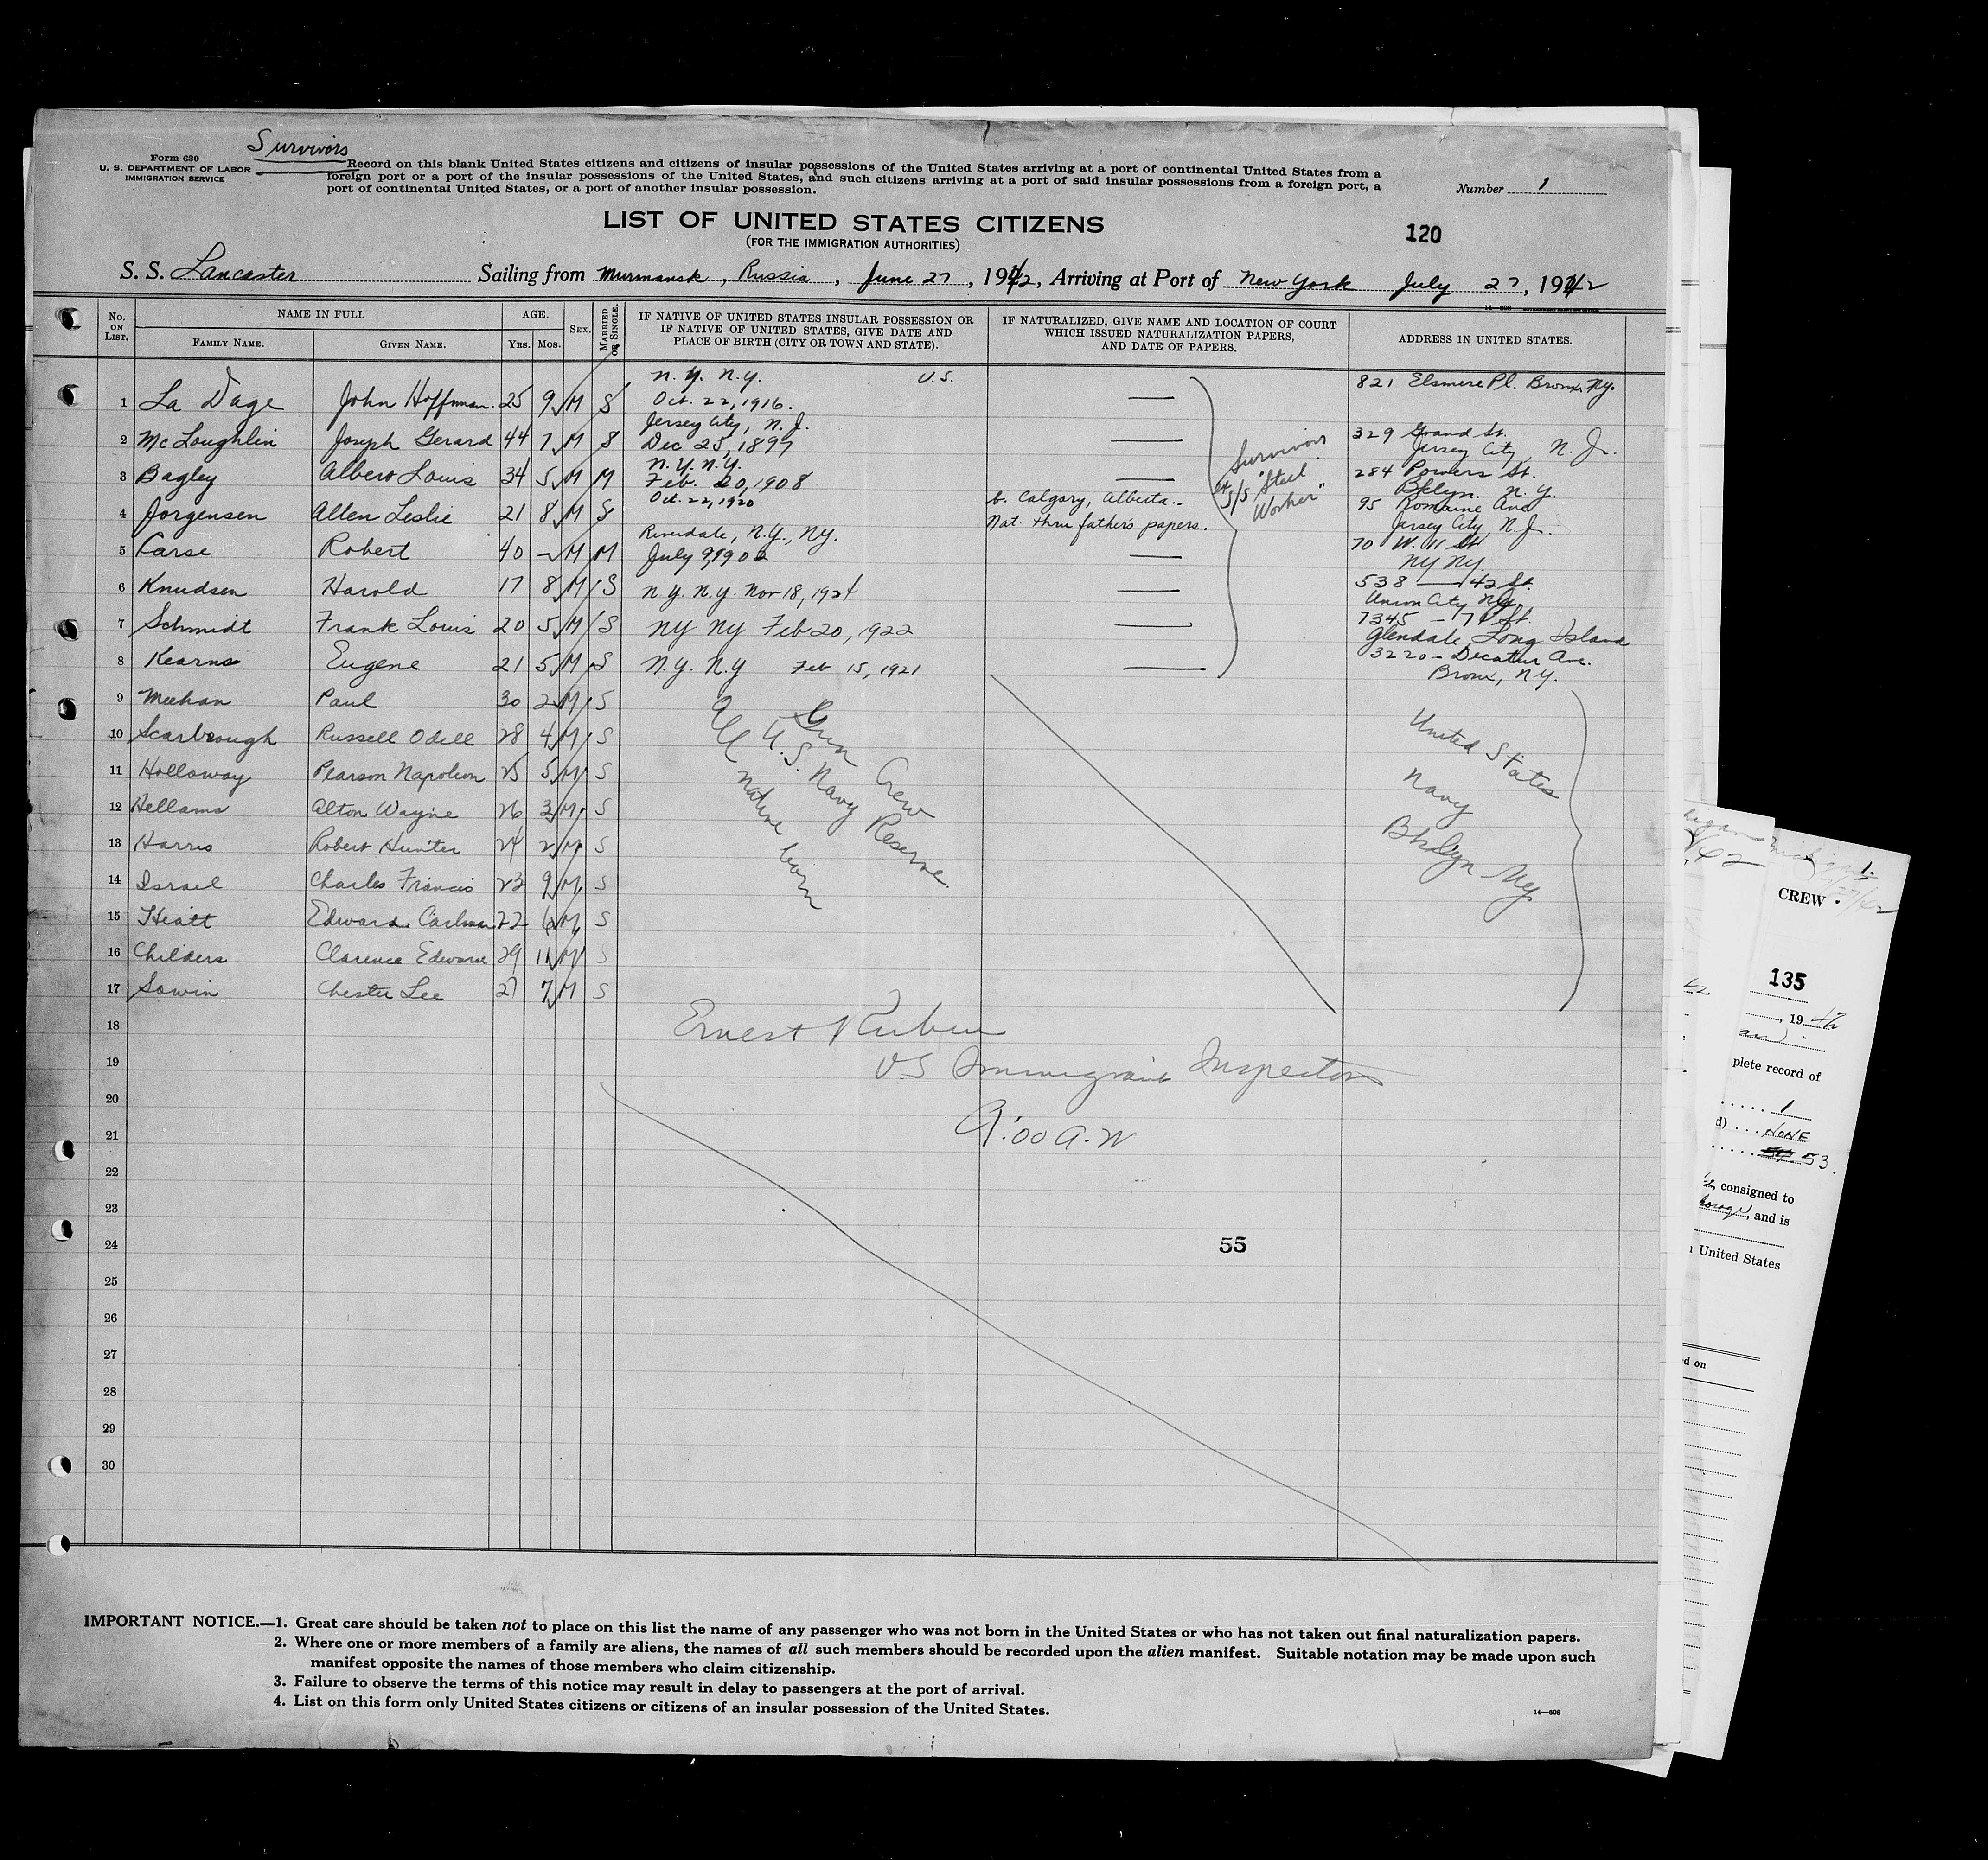 Survivors
Form 630
U. S. DEPARTMENT OF LABOR
IMMIGRATION SERVICE
Record on this blank United States citizens and citizens of insular possessions of the United States arriving at a port of continental United States from a
foreign port or a port of the insular possessions of the United States, and such citizens arriving at a port of said insular possessions from a foreign port, a
port of continental United States, or a port of another insular possession.
Number 1
LIST OF UNITED STATES CITIZENS
(FOR THE IMMIGRATION AUTHORITIES)
120
S. S. Lancaster Sailing from Murmansk, Russia, June 27, 1942, Arriving at Port of New York July 27, 1942
No. ON LIST. NAME IN FULL AGE. SEX. MARRIED OR SINGLE. IF NATIVE OF UNITED STATES INSULAR POSSESSION OR IF NATIVE OF UNITED STATES, GIVE DATE AND PLACE OF BIRTH (CITY OR TOWN AND STATE). IF NATURALIZED, GIVE NAME AND LOCATION OF COURT WHICH ISSUED NATURALIZATION PAPERS, AND DATE OF PAPERS. ADDRESS IN UNITED STATES.
FAMILY NAME. GIVEN NAME. YRS. MOS.
1 La Dage John Hoffman 25 9 M S N.Y. N.Y. U.S. Oct. 22, 1916. — 821 Elsmere Pl. Bronx, Ny.
2 McLoughlin Joseph Gerard 44 7 M S Jersey City, N.J. Dec 25, 1897 — 329 Grand St. Jersey City, N.J.
3 Bagley Albert Louis 34 5 M M N.Y. N.Y. Feb. 20, 1908 — 284 Powers St. Bklyn. N.Y.
4 Jorgensen Allen Leslie 21 8 M S Oct. 22, 1920 b. Calgary, Alberta.. Nat. thru father's papers. 95 Romaine Ave Jersey City, N.J.
5 Carse Robert 40 - M M Riverdale, N.Y., Ny. July 9, 1902 — 70 W. 11 St NY NY.
6 Knudsen Harold 17 8 M S N.Y. N.Y. Nov 18, 1924 — 538 — 42 St. Union City
7 Schmidt Frank Louis 20 5 M S NY NY Feb 20, 1922 — 7345 - 71 St. Glendale, Long Island
8 Kearns Eugene 21 5 M S N.Y. N.Y Feb 15, 1921 — 3220 - Decatur Ave. Bronx, N.Y.
Survivors
ex S/S "Steel
Worker"
9 Meehan Paul 30 2 M S
10 Scarbrough Russell Odell 28 4 M S
11 Holloway Pearson Napoleon 25 5 M S
12 Hellams Alton Wayne 26 3 M S
13 Harris Robert Hunter 24 2 M S
14 Israel Charles Francis 23 9 M S
15 Hiatt Edward 22 6 M S
16 Childers Clarence Edward 29 11 M S
17 Sowin Chester Lee 27 7 M S
Gun Crew
U.S. Navy Reserve.
All native born
United States
Navy
Bklyn Ny
18
Ernest Rubin
19
U.S Immigrant Inspector
20
21
9:00 A.M
22
23
24
55
25
26
27
28
29
30
IMPORTANT NOTICE.—1. Great care should be taken not to place on this list the name of any passenger who was not born in the United States or who has not taken out final naturalization papers.
2. Where one or more members of a family are aliens, the names of all such members should be recorded upon the alien manifest. Suitable notation may be made upon such
manifest opposite the names of those members who claim citizenship.
3. Failure to observe the terms of this notice may result in delay to passengers at the port of arrival.
4. List on this form only United States citizens or citizens of an insular possession of the United States.
14—608
CREW
135
, 19 42
plete record of
1
d) NONE
53.
consigned to
, and is
United States
d on